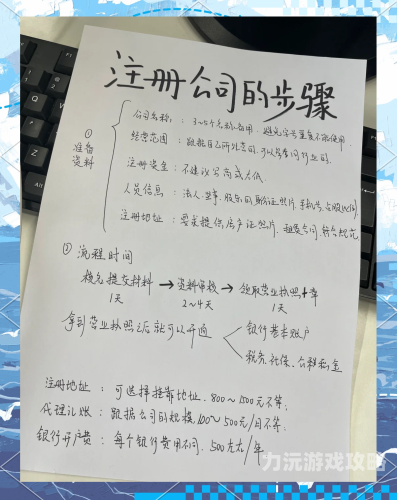 注册公司的步骤
① 准备资料
公司名称：3~5个名称备用，避免字号重复不能使用
经营范围：跟据自己所经营的，可以参考同行业的
注册资金：不建议写高或太低
人员信息：法人、监事、股东的身份证照片、手机号、占股比例
注册地址：要求提供房产证照片、租赁合同、符合规范
② 流程时间
核名提交材料 → 资料审核 → 领取营业执照+章
1天 2~4天 1天
拿到营业执照之后就可以开通
银行基本账户
税务、社保、公积金
注册地址：可选择挂靠地址、800~1500元不等，
代理记账：跟据公司的规模，100~500元/月不等，
银行开户费：每个银行费用不同，500左右/年
力沅游戏攻略